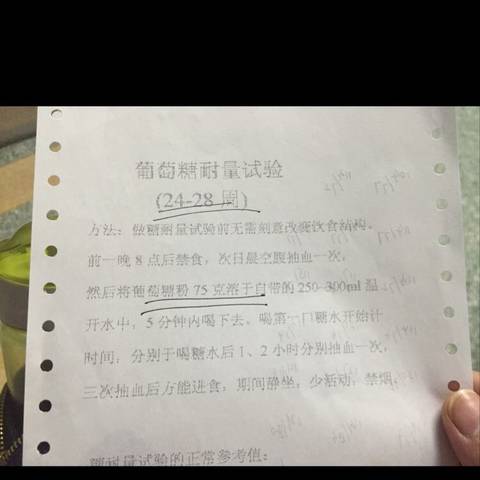 葡萄糖耐量试验
(24-28 周)
方法：做糖耐量试验前无需刻意改变饮食结构。
前一晚 8 点后禁食，次日晨空腹抽血一次，
然后将葡萄糖粉 75 克溶于自带的 250-300ml 温
开水中，5 分钟内喝下去。喝第一口糖水开始计
时间，分别于喝糖水后 1、2 小时分别抽血一次，
三次抽血后方能进食，期间静坐，少活动，禁烟。
糖耐量试验的正常参考值：